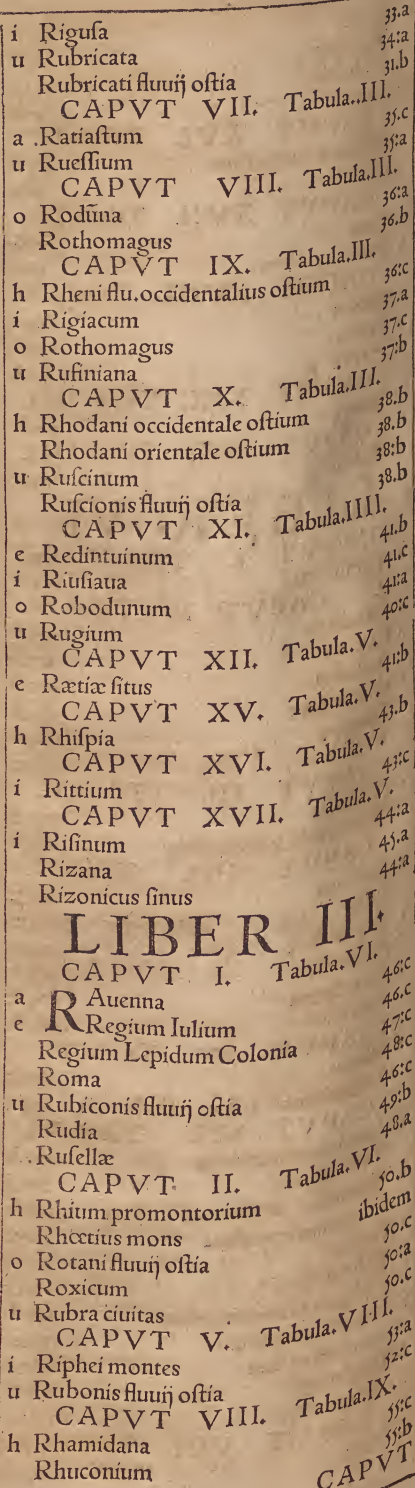 i Riguſa 33.a
u Rubricata 34:a
Rubricati fluuij oſtia 31.b
CAPVT VII. Tabula.III.
a .Ratiaſtum 35.c
u Rueſſium 35:a
CAPVT VIII. Tabula.III.
o Rodūna 36:a
Rothomagus 36.b
CAPVT IX. Tabula.III.
h Rheni flu.occidentalius oſtium 36:c
i Rigiacum 37.a
o Rothomagus 37.c
u Rufiniana 37:b
CAPVT X. Tabula.III.
h Rhodani occidentale oſtium 38.b
Rhodani orientale oſtium 38.b
u Ruſcinum 38:b
Ruſcionis fluuij oſtia 38.b
CAPVT XI. Tabula.IIII.
e Redintuinum 41.b
i Riuſiaua 41.c
o Robodunum 41:a
u Rugium 40:c
CAPVT XII. Tabula.V.
e Rætiæ ſitus 41:b
CAPVT XV. Tabula.V.
h Rhiſpia 43.b
CAPVT XVI. Tabula.V.
i Rittium 43:c
CAPVT XVII. Tabula.V.
i Riſinum 44:a
Rizana 45.a
Rizonicus ſinus 44:a
LIBER III.
CAPVT I. Tabula.VI.
a RAuenna 46:c
e Regium Iulium 46.c
Regium Lepidum Colonia 47:c
Roma 48:c
u Rubiconis fluuij oſtia 46:c
Rudia 49:b
.Ruſellæ 48.a
CAPVT II. Tabula.VI.
h Rhium promontorium 50.b
Rhœtius mons ibidem
o Rotani fluuij oſtia 50.c
Roxicum 50:a
u Rubra ciuitas 50.c
CAPVT V. Tabula.VIII.
i Riphei montes 53:a
u Rubonis fluuij oſtia 52:c
CAPVT VIII. Tabula.IX.
h Rhamidana 55:c
Rhuconium 55:b
CAPVT